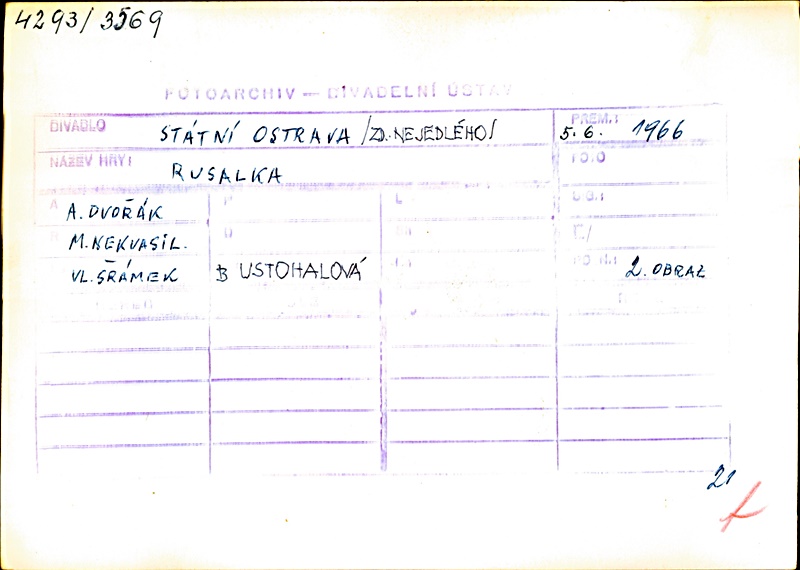 4293/3569
FOTOARCHIV — DIVADELNÍ ÚSTAV
DIVADLO STÁTNÍ OSTRAVA /ZD. NEJEDLÉHO/ PREM.: 5.6. 1966
NÁZEV HRY: RUSALKA FOTO
A A. DVOŘÁK
M. NEKVASIL.
VL. ŠRÁMEK B USTOHALOVÁ 2. OBRAZ
21